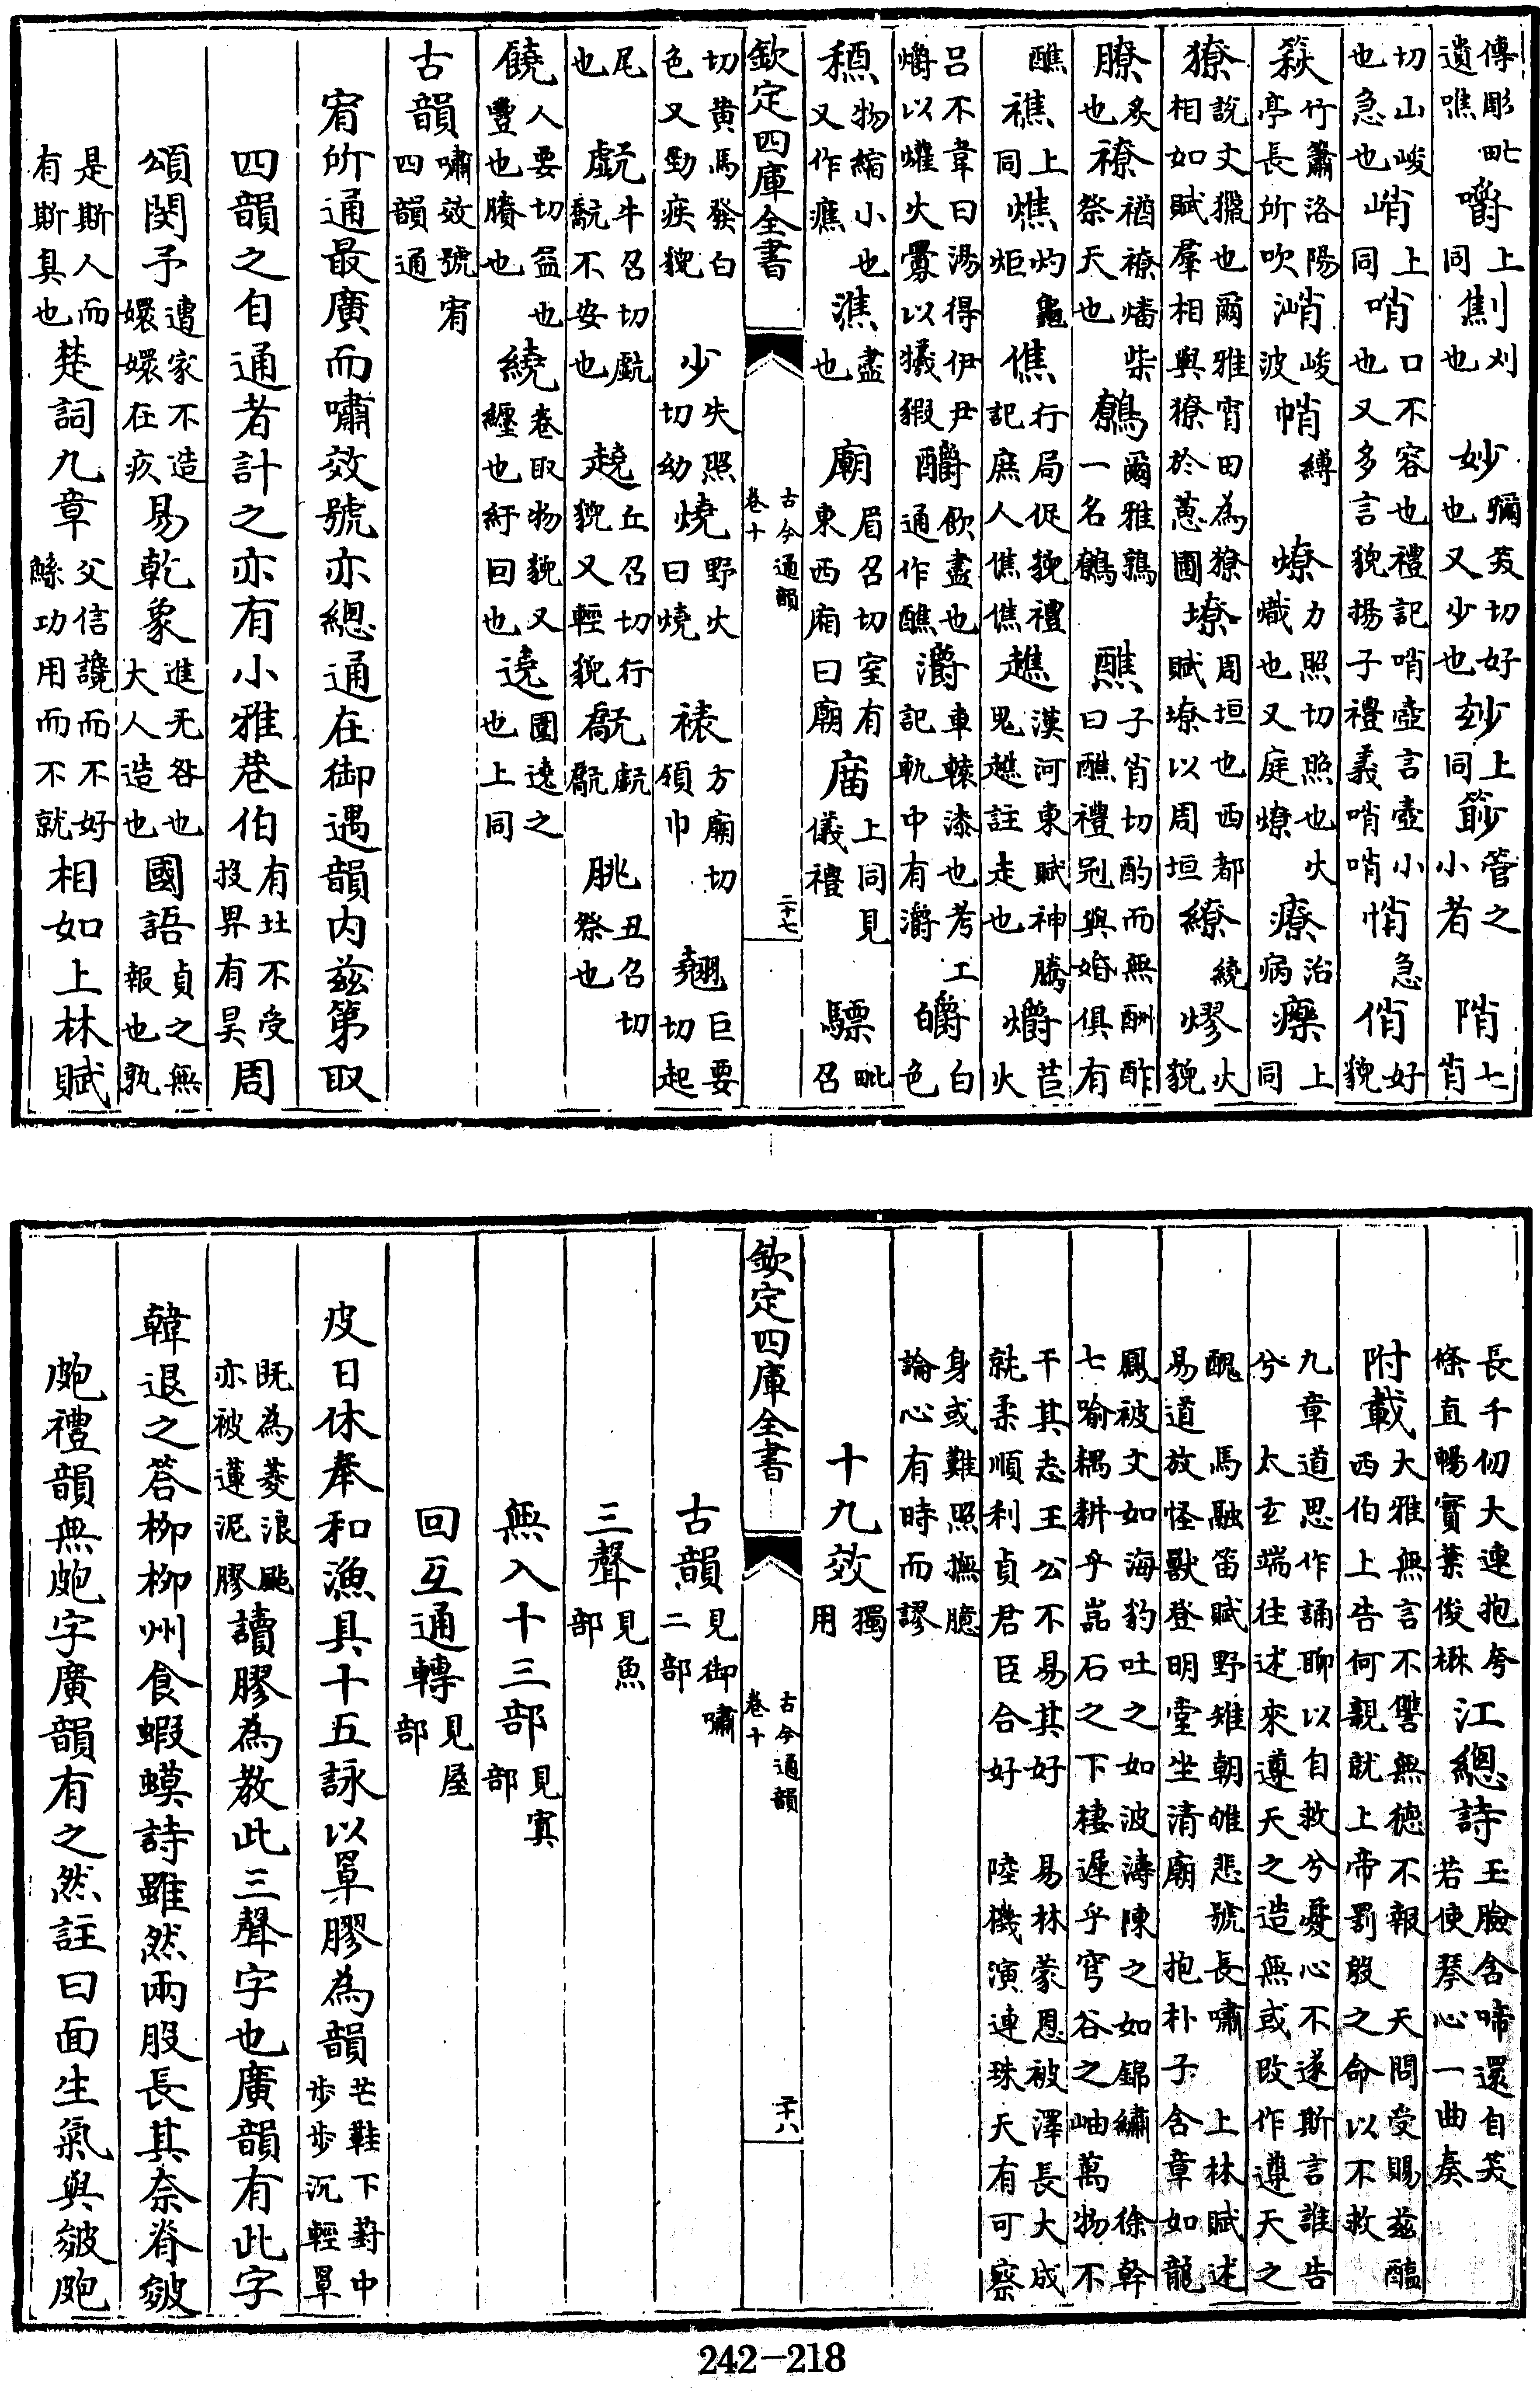 傳彫毗遺噍嚼上同劁刈也 妙彌笑切好也又少也玅上同篎管之小者 陗七肖
切山峻也急也峭上同哨口不容也禮記哨壺言壺小也又多言貌揚子禮義哨哨悄急俏好貌
篍竹簫洛陽亭長所吹峻波帩縛 燎力照切照也火熾也又庭燎療治病𤻲上同
獠說文獵也爾雅宵田為獠相如賦羣相與獠於蕙圃㙩周垣也西都賦㙩以周垣繚繞熮火貌
膫炙也燔柴祭天也鷯爾雅鶉一名鷯 醮子肖切酌而無酬酢曰醮禮冠與婚俱有
醮上同燋灼龜炬僬行局促貌禮記庶人僬僬趭漢河東賦神騰鬼趭註走也爝苣火
呂不韋曰湯得伊尹爝以爟火釁以犧猳釂飲盡也通作醮灂車轅漆也考工記軌中有灂皭白色
物縮小也又作癄潐盡也 廟眉召切室有東西廂曰廟庿上同見儀禮 驃毗召
欽定四庫全書 古今通韻卷十 二十七
切黄馬發白色又勁疾貌 少失照切幼燒野火曰燒 裱方廟切領巾 翹巨要切起
尾也 牛召切不安也 趬丘召切行貌又輕貌 朓丑召切祭也
饒人要切益也豐也賸也 繞卷取物貌又纏也紆回也遶圍遶之也上同
古韻嘯效號宥四韻通
宥所通最廣而嘯效號亦總通在御遇韻內兹第取
四韻之自通者計之亦有小雅巷伯有北不受投畀有昊周
頌閔予遭家不造嬛嬛在疚易乾象進无咎也大人造也國語貞之無報也孰
是斯人而有斯具也楚詞九章父信讒而不好鯀功用而不就相如上林賦
長千仞大連抱夸條直暢實葉俊楙江總詩玉臉含啼還自笑若使琴心一曲奏
附載大雅無言不讐無德不報 天問受賜兹醢西伯上告何親就上帝罰殷之命以不救
九章道思作誦聊以自救兮憂心不遂斯言誰告兮 太玄端往述來遵天之造無或改作遵天之
醜 馬融笛賦野雉朝雊悲號長嘯 上林賦述易道放怪獸登明堂坐清廟 抱朴子含章如龍
鳳被文如海豹吐之如波濤陳之如錦繡 徐幹七喻耦耕乎嵓石之下棲遲乎穹谷之岫萬物不
干其志王公不易其好 易林蒙恩被澤長大成就柔順利貞君臣合好 陸機演連珠天有可察
身或難照撫臆論心有時而謬
十九效獨用
欽定四庫全書 古今通韻卷十 二十八
古韻見御嘯二部
三聲見魚部
無入十三部見寘部
回互通轉見屋部
皮日休奉和漁具十五詠以罩膠為韻芒鞋下葑中步步沉輕罩
既為菱浪颭亦被蓮泥膠讀膠為教此三聲字也廣韻有此字
韓退之答柳柳州食蝦蟆詩雖然兩股長其奈脊皴
皰禮韻無皰字廣韻有之然註曰面生氣與皴皰
242—218